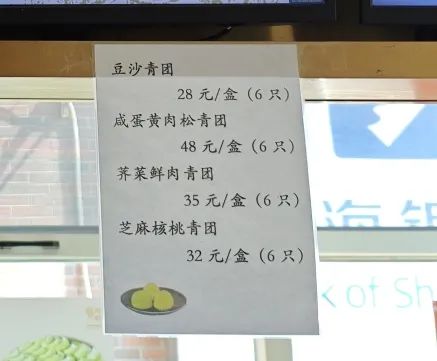 豆沙青团
28 元/盒（6 只）
咸蛋黄肉松青团
48 元/盒（6 只）
荠菜鲜肉青团
35 元/盒（6 只）
芝麻核桃青团
32 元/盒（6 只）
海银
k of Sh